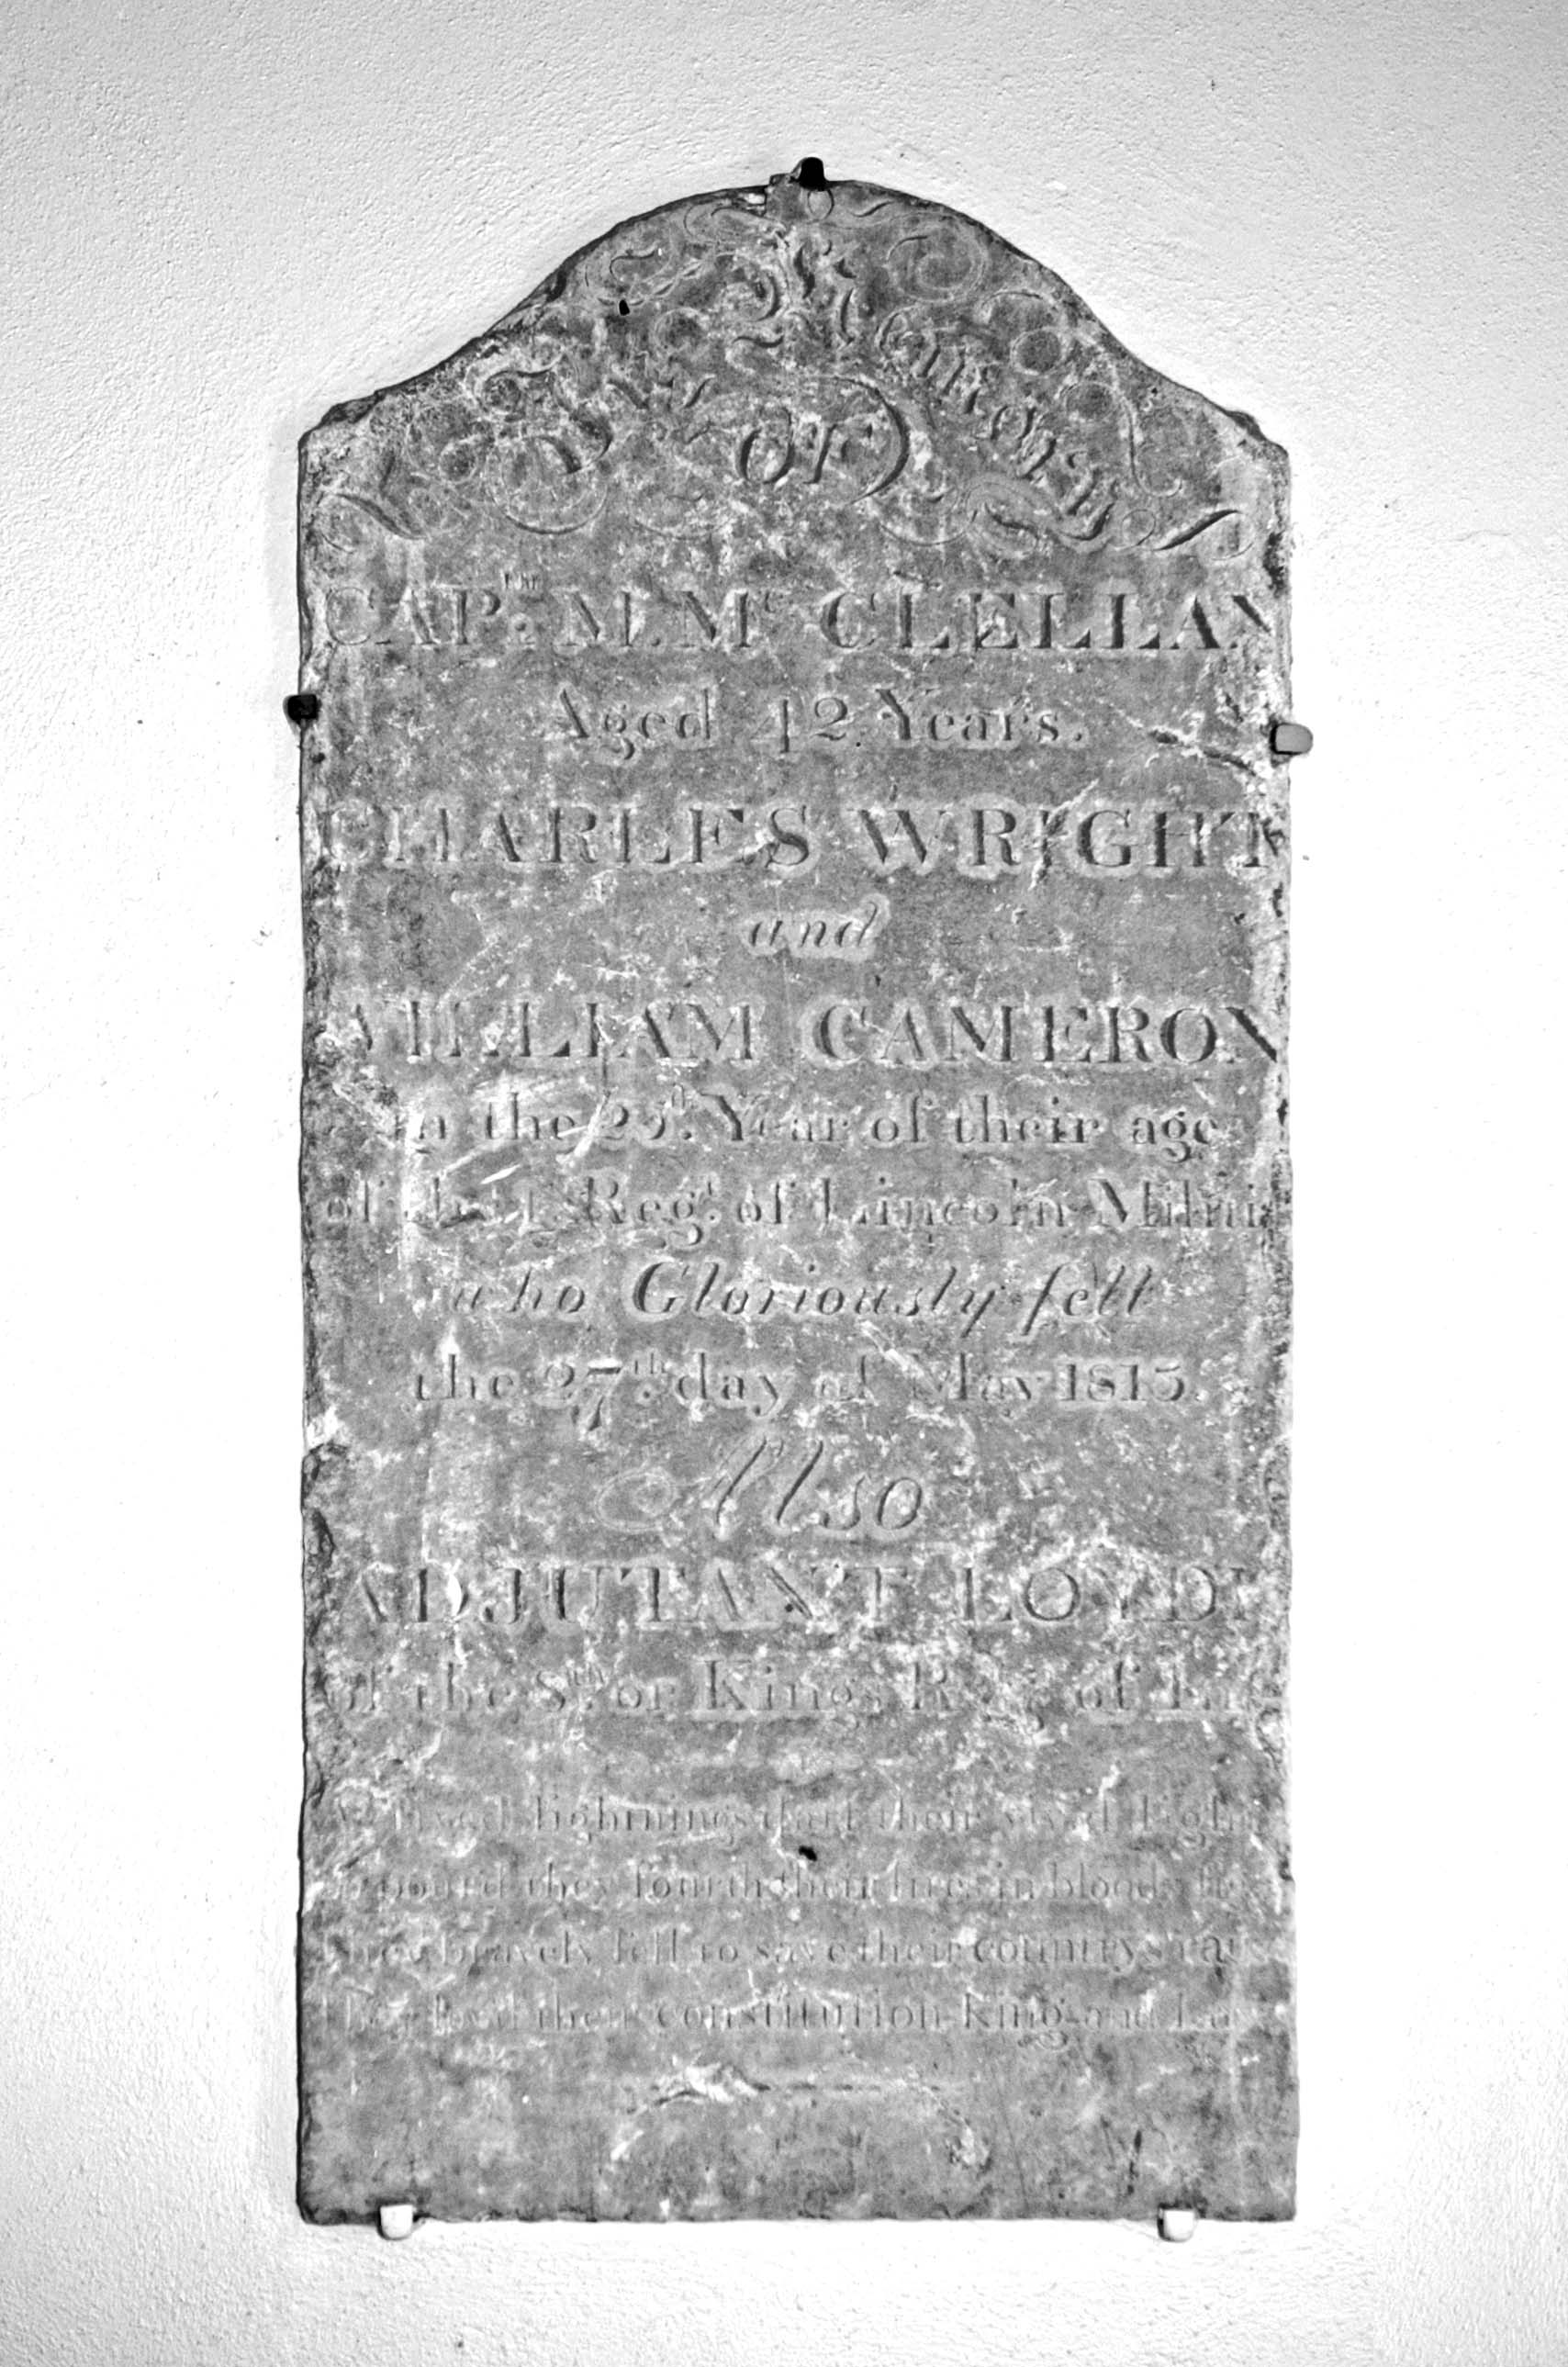 In Memory
OF
CAPtn. M. Mc CLELLAN
Aged 42 Years.
CHARLES WRIGHT
and
WILLIAM CAMERON
in the 25th. Year of their age
of the 1st Regt. of Lincoln Militi
who Gloriously fell
the 27th. day of May 1813.
Also
ADJUTANT LOYD
of the 8th. or Kings Reg. of
lightnings dart their vivid
poured they fourth their fires in bloody
They bravely fell to save their countrys
They lovd their constitution king and